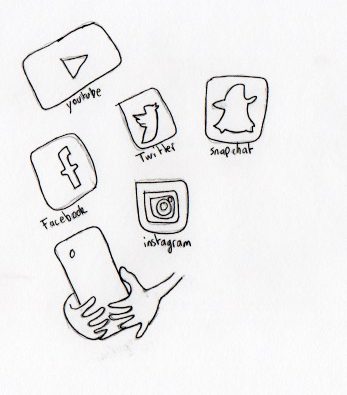 youtube
Twitter
snapchat
Facebook
instagram